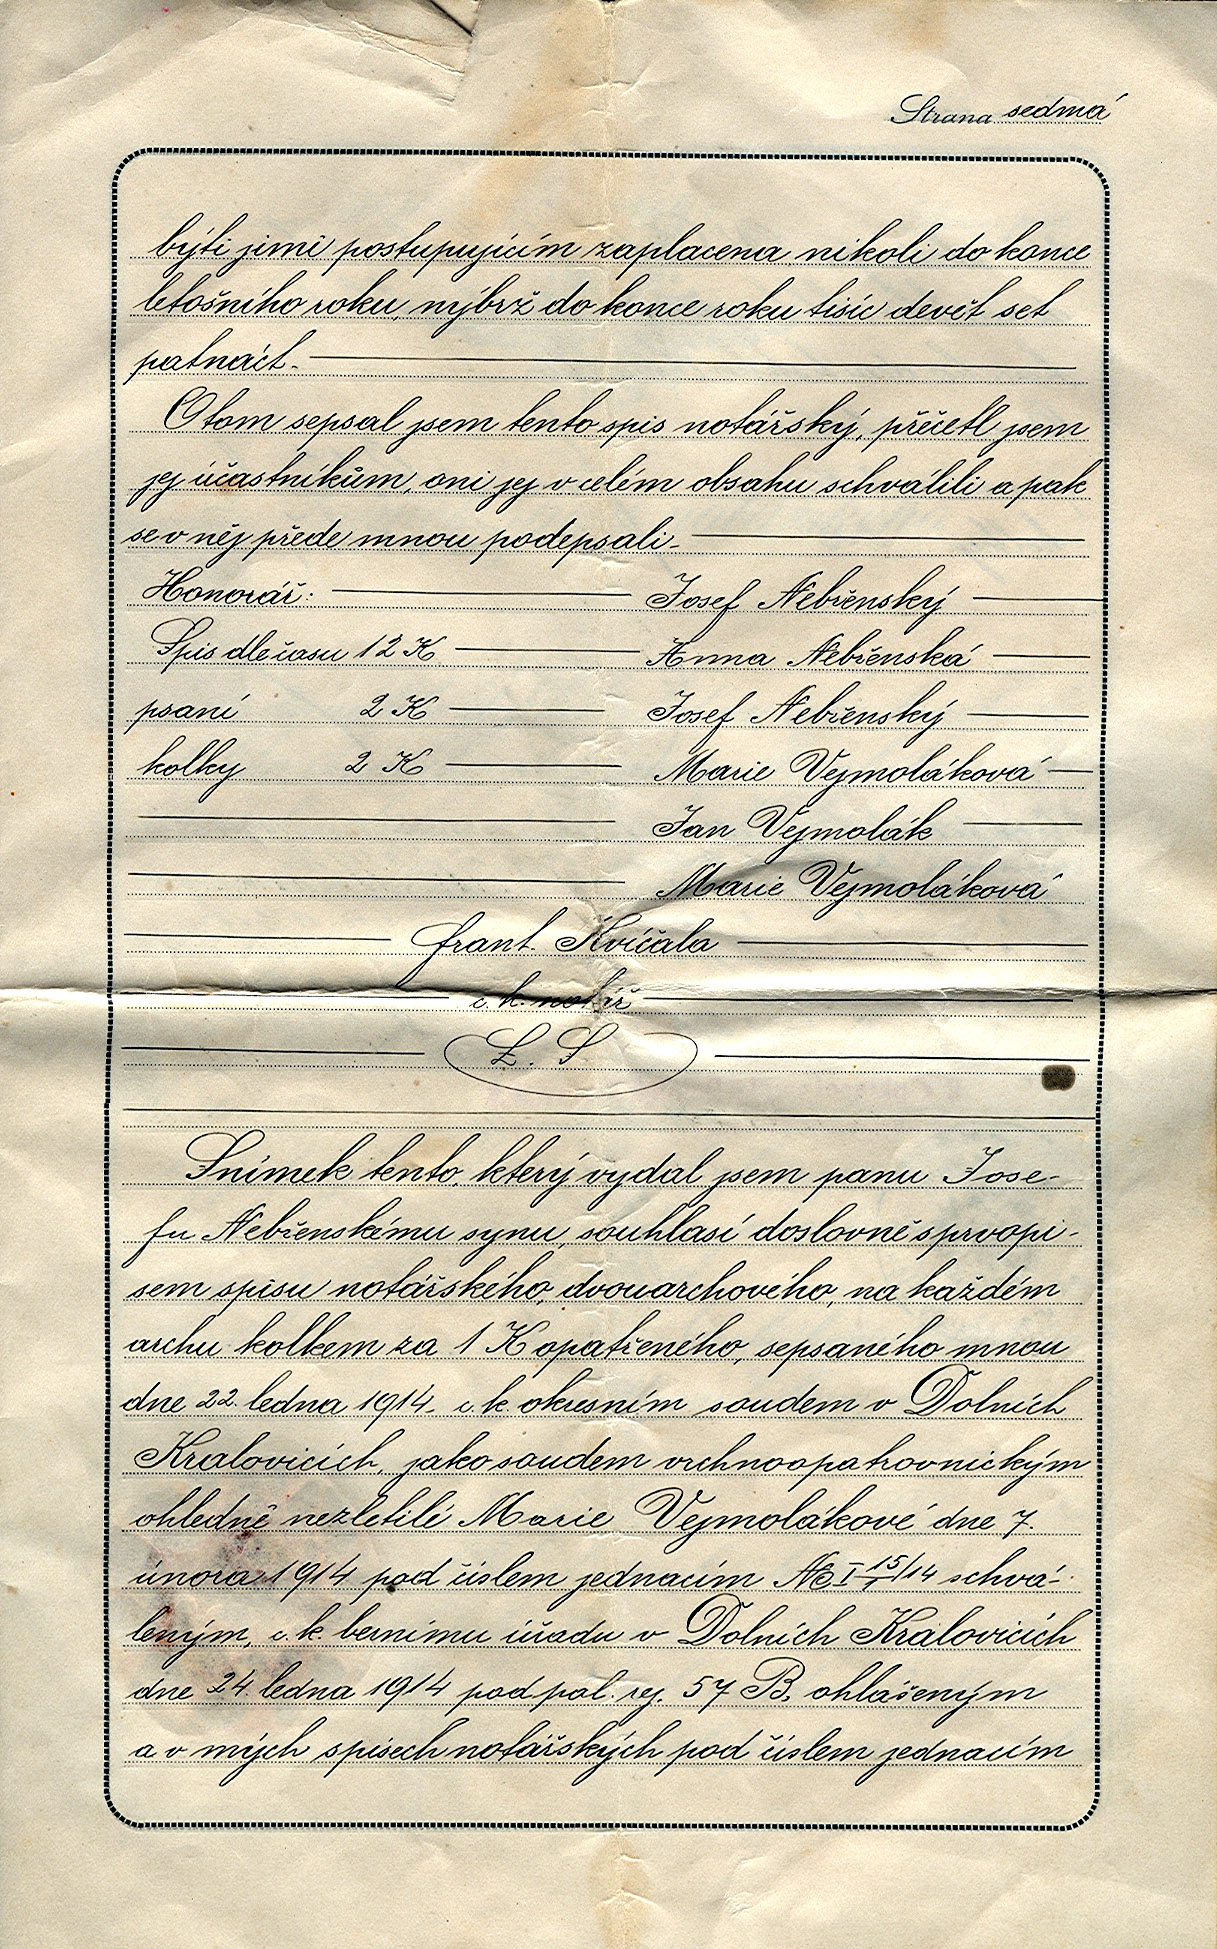 Strana sedmá
býti jimi postupujícím zaplacena, nikoli do konce
letošního roku, nýbrž do konce roku tisíc devět set
patnáct.
O tom sepsal jsem tento spis notářský, přečetl jsem
jej účastníkům, oni jej v celém obsahu schválili a pak
se v něj přede mnou podepsali.
Honorář: Josef Nebřenský
Spis dle času 12 K Anna Nebřenská
psaní 2 K Josef Nebřenský
kolky 2 K Marie Vejmoláková
Jan Vejmolák
Marie Vejmoláková
Frant. Kvíčala
c. k. notář
L. S
Snímek tento, který vydal jsem panu Jose-
fu Nebřenskému synu, souhlasí doslovně s prvopi-
sem spisu notářského, dvouarchového, na každém
archu kolkem za 1 K opatřeného, sepsaného mnou
dne 22. ledna 1914. c. k. okresním soudem v Dolních
Kralovicích, jako soudem vrchnoopatrovnickým
ohledně nezletilé Marie Vejmolákové dne 7.
února 1914 pod číslem jednacím Nc I 15/1/14 schvá-
leným, c. k. bernímu úřadu v Dolních Kralovicích
dne 24. ledna 1914 pod pol. rej. 57 B, ohlášeným
a v mých spisech notářských pod číslem jednacím